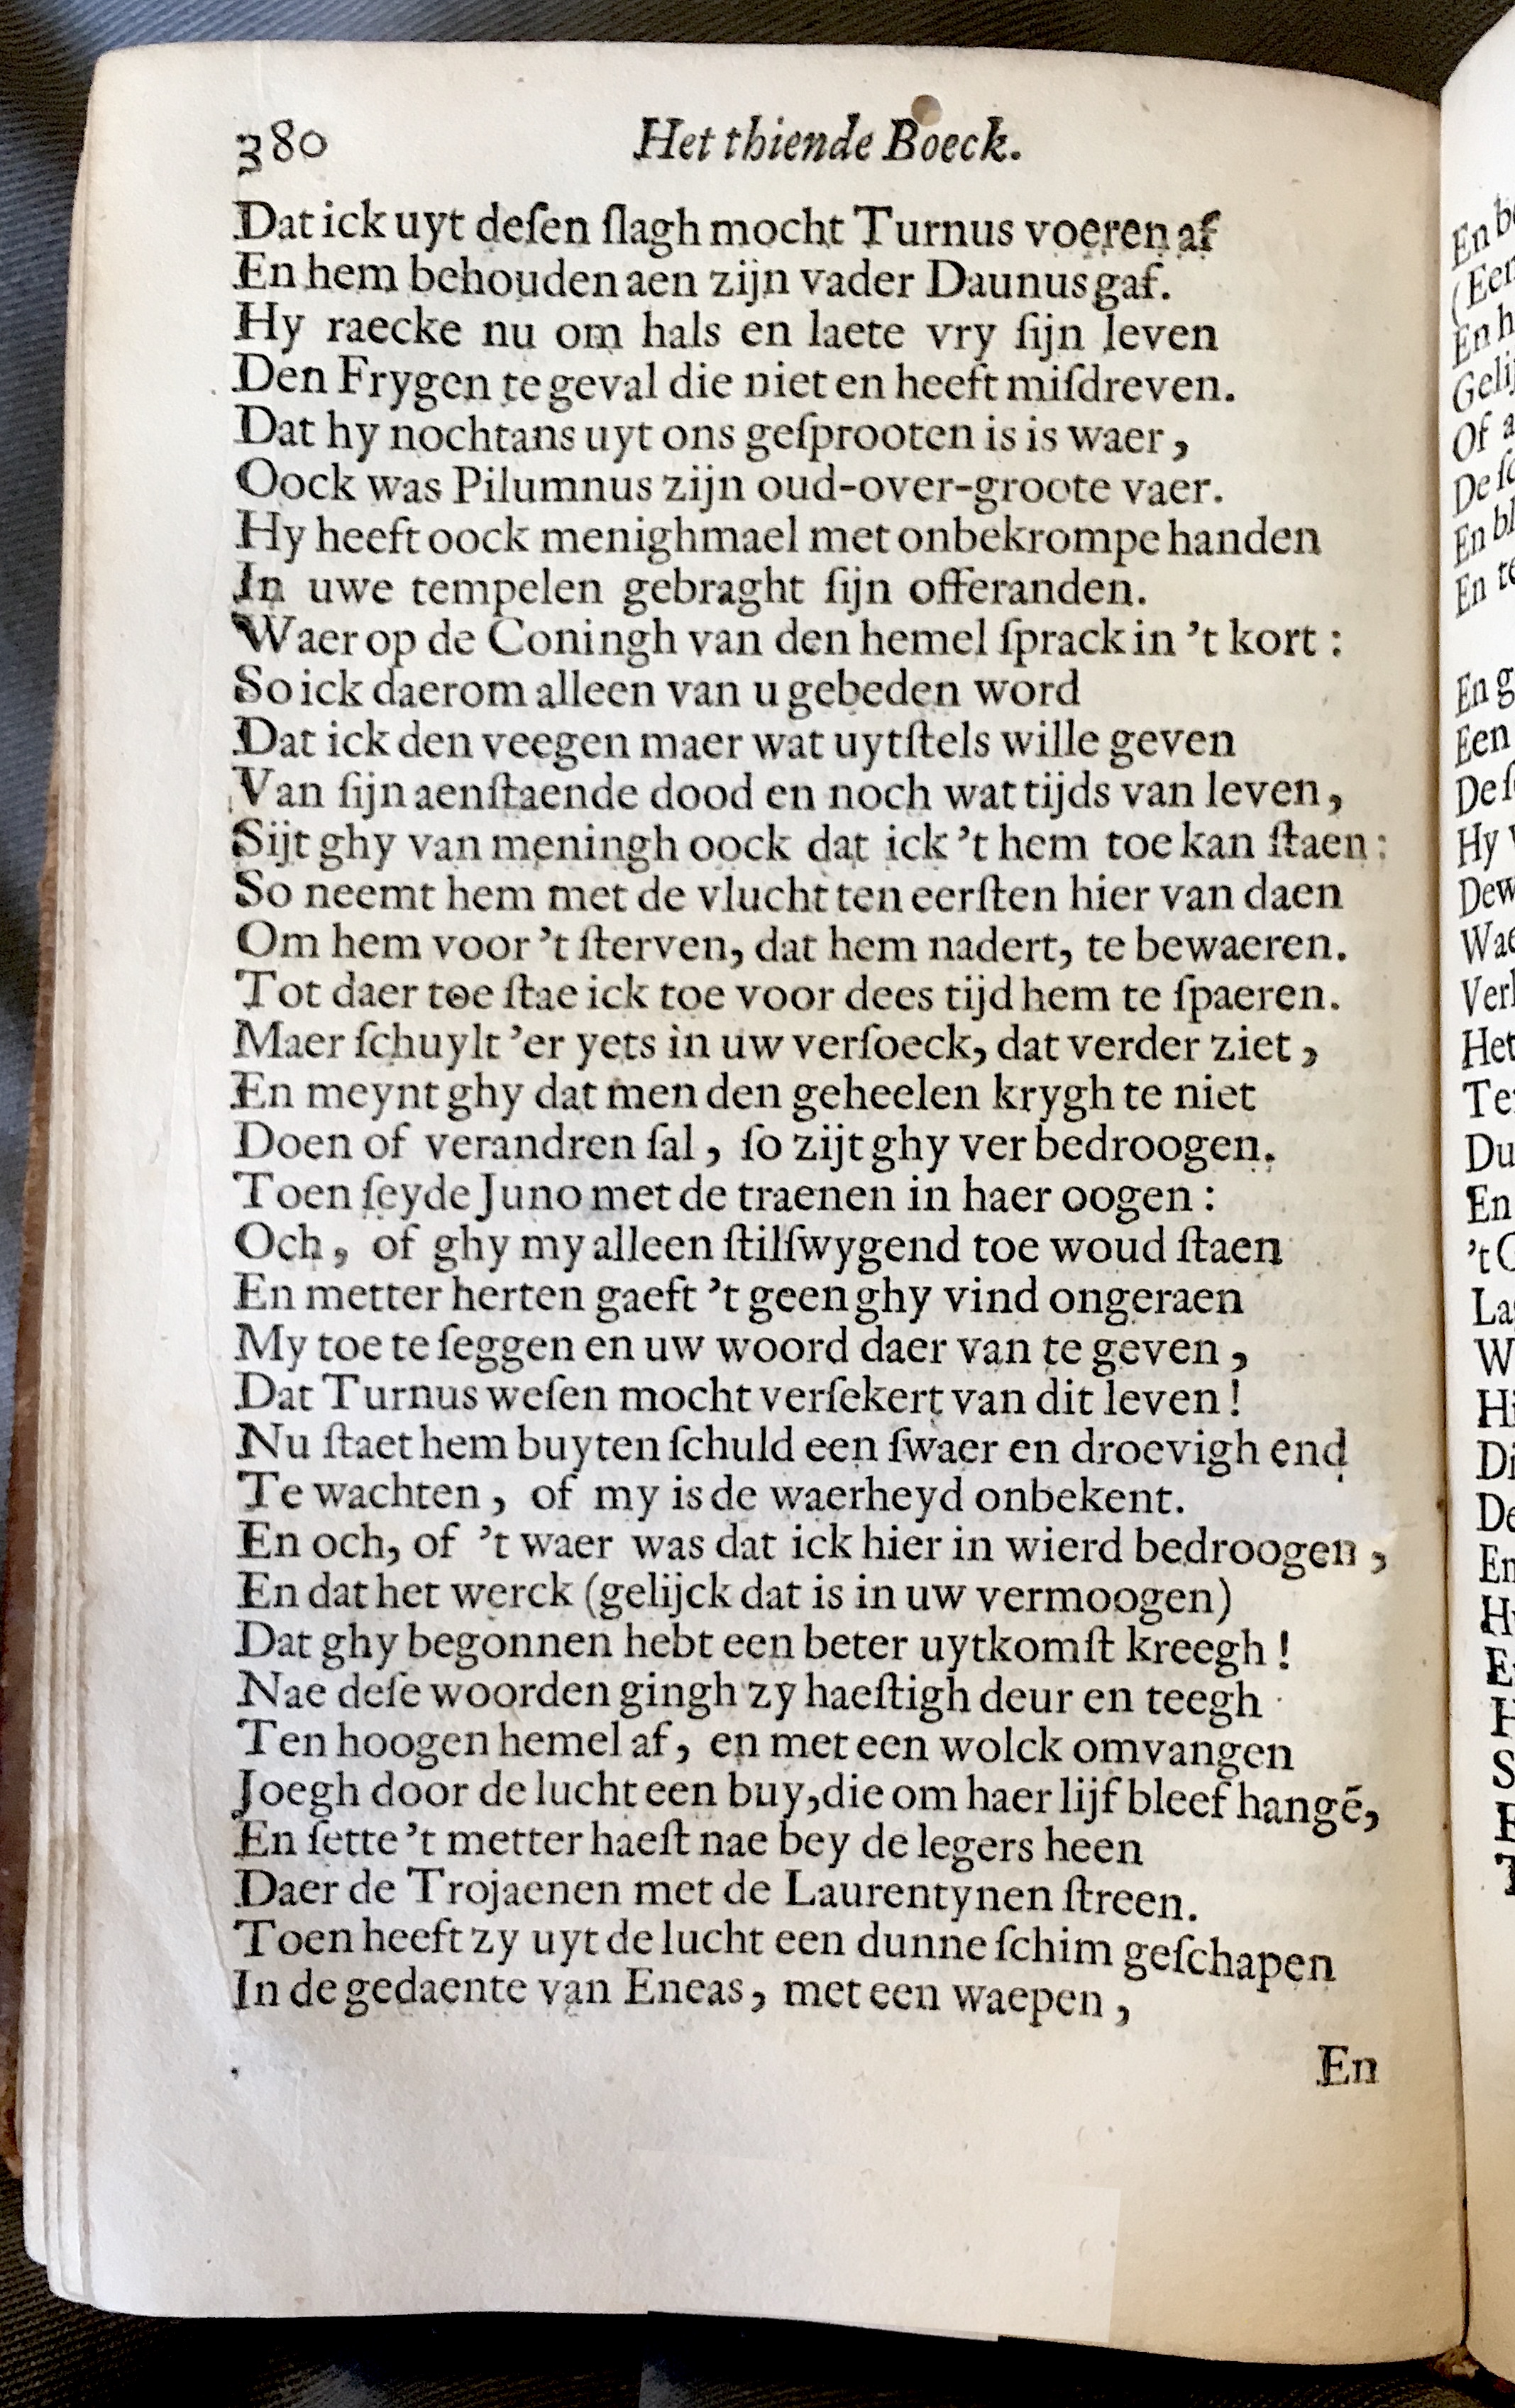 380 Het thiende Boeck.
Dat ick uyt deſen ſlagh mocht Turnus voeren af
En hem behouden aen zijn vader Daunus gaf.
Hy raecke nu om hals en laete vry ſijn leven
Den Frygen te geval die niet en heeft miſdreven.
Dat hy nochtans uyt ons geſprooten is is waer,
Oock was Pilumnus zijn oud-over-groote vaer.
Hy heeft oock menighmael met onbekrompe handen
In uwe tempelen gebraght ſijn offeranden.
Waer op de Coningh van den hemel ſprack in 't kort:
So ick daerom alleen van u gebeden word
Dat ick den veegen maer wat uytſtels wille geven
Van ſijn aenſtaende dood en noch wat tijds van leven,
Sijt ghy van meningh oock dat ick 't hem toe kan ſtaen:
So neemt hem met de vlucht ten eerſten hier van daen
Om hem voor 't ſterven, dat hem nadert, te bewaeren.
Tot daer toe ſtae ick toe voor dees tijd hem te ſpaeren.
Maer ſchuylt 'er yets in uw verſoeck, dat verder ziet,
En meynt ghy dat men den geheelen krygh te niet
Doen of verandren ſal, ſo zijt ghy ver bedroogen.
Toen ſeyde Juno met de traenen in haer oogen:
Och, of ghy my alleen ſtilſwygend toe woud ſtaen
En metter herten gaeft 't geen ghy vind ongeraen
My toe te ſeggen en uw woord daer van te geven,
Dat Turnus weſen mocht verſekert van dit leven!
Nu ſtaet hem buyten ſchuld een ſwaer en droevigh end
Te wachten, of my is de waerheyd onbekent.
En och, of 't waer was dat ick hier in wierd bedroogen,
En dat het werck (gelijck dat is in uw vermoogen)
Dat ghy begonnen hebt een beter uytkomſt kreegh!
Nae deſe woorden gingh zy haeſtigh deur en teegh
Ten hoogen hemel af, en met een wolck omvangen
Joegh door de lucht een buy, die om haer lijf bleef hangē,
En ſette 't metter haeſt nae bey de legers heen
Daer de Trojaenen met de Laurentynen ſtreen.
Toen heeft zy uyt de lucht een dunne ſchim geſchapen
In de gedaente van Eneas, met een waepen,
En